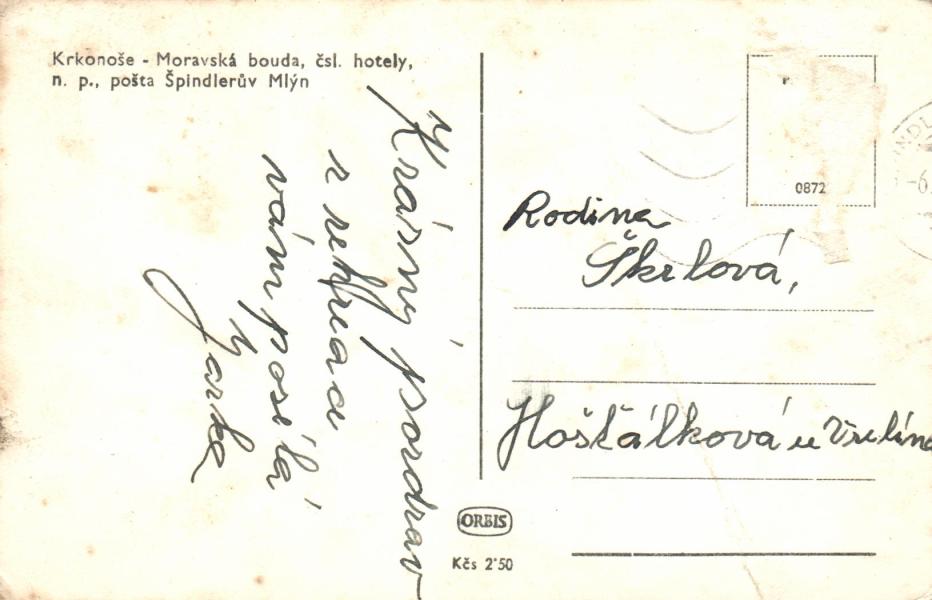 Krkonoše - Moravská bouda, čsl. hotely,
n. p., pošta Špindlerův Mlýn
Krásný pozdrav
z rekreace
vám posílá
Jarka
0872
Rodina
Škrlová,
Hošťálková u Vsetína
ORBIS
Kčs 2'50